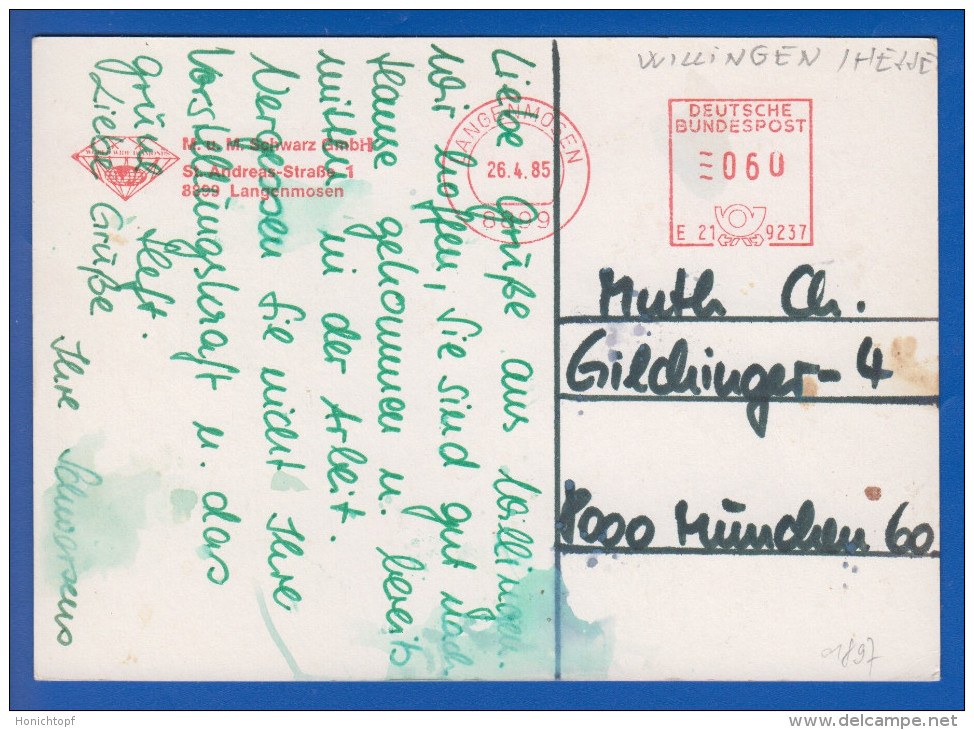 WILLINGEN / HESSE
DEUTSCHE
BUNDESPOST
060
E 21 9237
LANGENMOSEN
26.4.85
8899
WORLD WIDE DIAMONDS
M. u. M. Schwarz GmbH
St. Andreas-Straße 1
8899 Langenmosen
Liebe Grüße aus Willingen.
Wir hoffen, Sie sind gut nach
Hause gekommen u. bereits
mitten in der Arbeit.
Vergessen Sie nicht Ihre
Vorstellungskraft u. das
grüne Heft.
Liebe Grüße
Ihre
Muth Ch.
Gilchinger-4
8000 München 60
1897
Honichtopf
www.delcampe.net